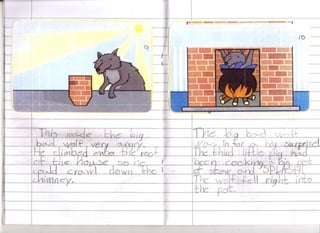 9
This made the big
bad wolf very angry.
He climbed onto the roof
of the house so he
could crawl down the
chimney.
10
The big bad wolf
was in for a big surprise!
The third little pig had
been cooking a big pot
of stew and SPLASH!
The wolf fell right into
the pot.